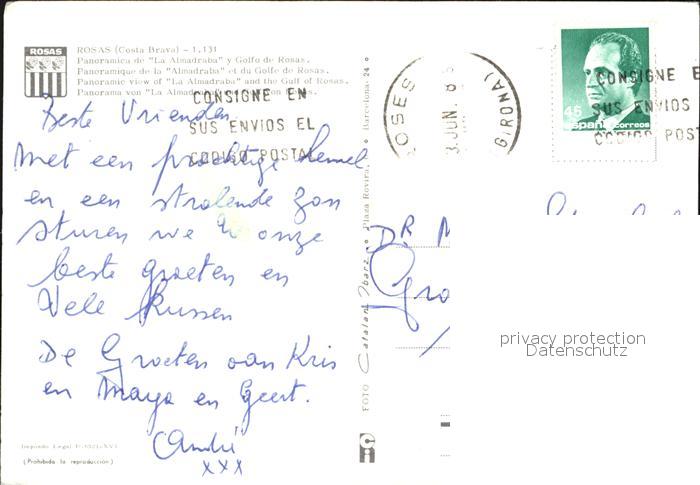 ROSAS
ROSAS (Costa Brava) - 1.131
Panorámica de "La Almadraba" y Golfo de Rosas.
Panoramique de la "Almadraba" et du Golfe de Rosas.
Panoramic view of "La Almadraba" and the Gulf of Rosas.
Panorama von "La
CONSIGNE EN
SUS ENVIOS EL
CODIGO POSTAL
Beste Vrienden
Met een prachtige hemel
en een stralende zon
sturen we U onze
beste groeten en
Vele Kussen
De Groeten van Kris
en Maya en Geert.
André
xxx
(Prohibida la reproducción)
FOTO Catalan Ibarz - Plaza Rovira, Barcelona-24
ROSES
3 JUN. 8
(GIRONA)
45
España correos
CONSIGNE E
SUS ENVIOS
CODIGO POST
DR M
Gro
privacy protection
Datenschutz